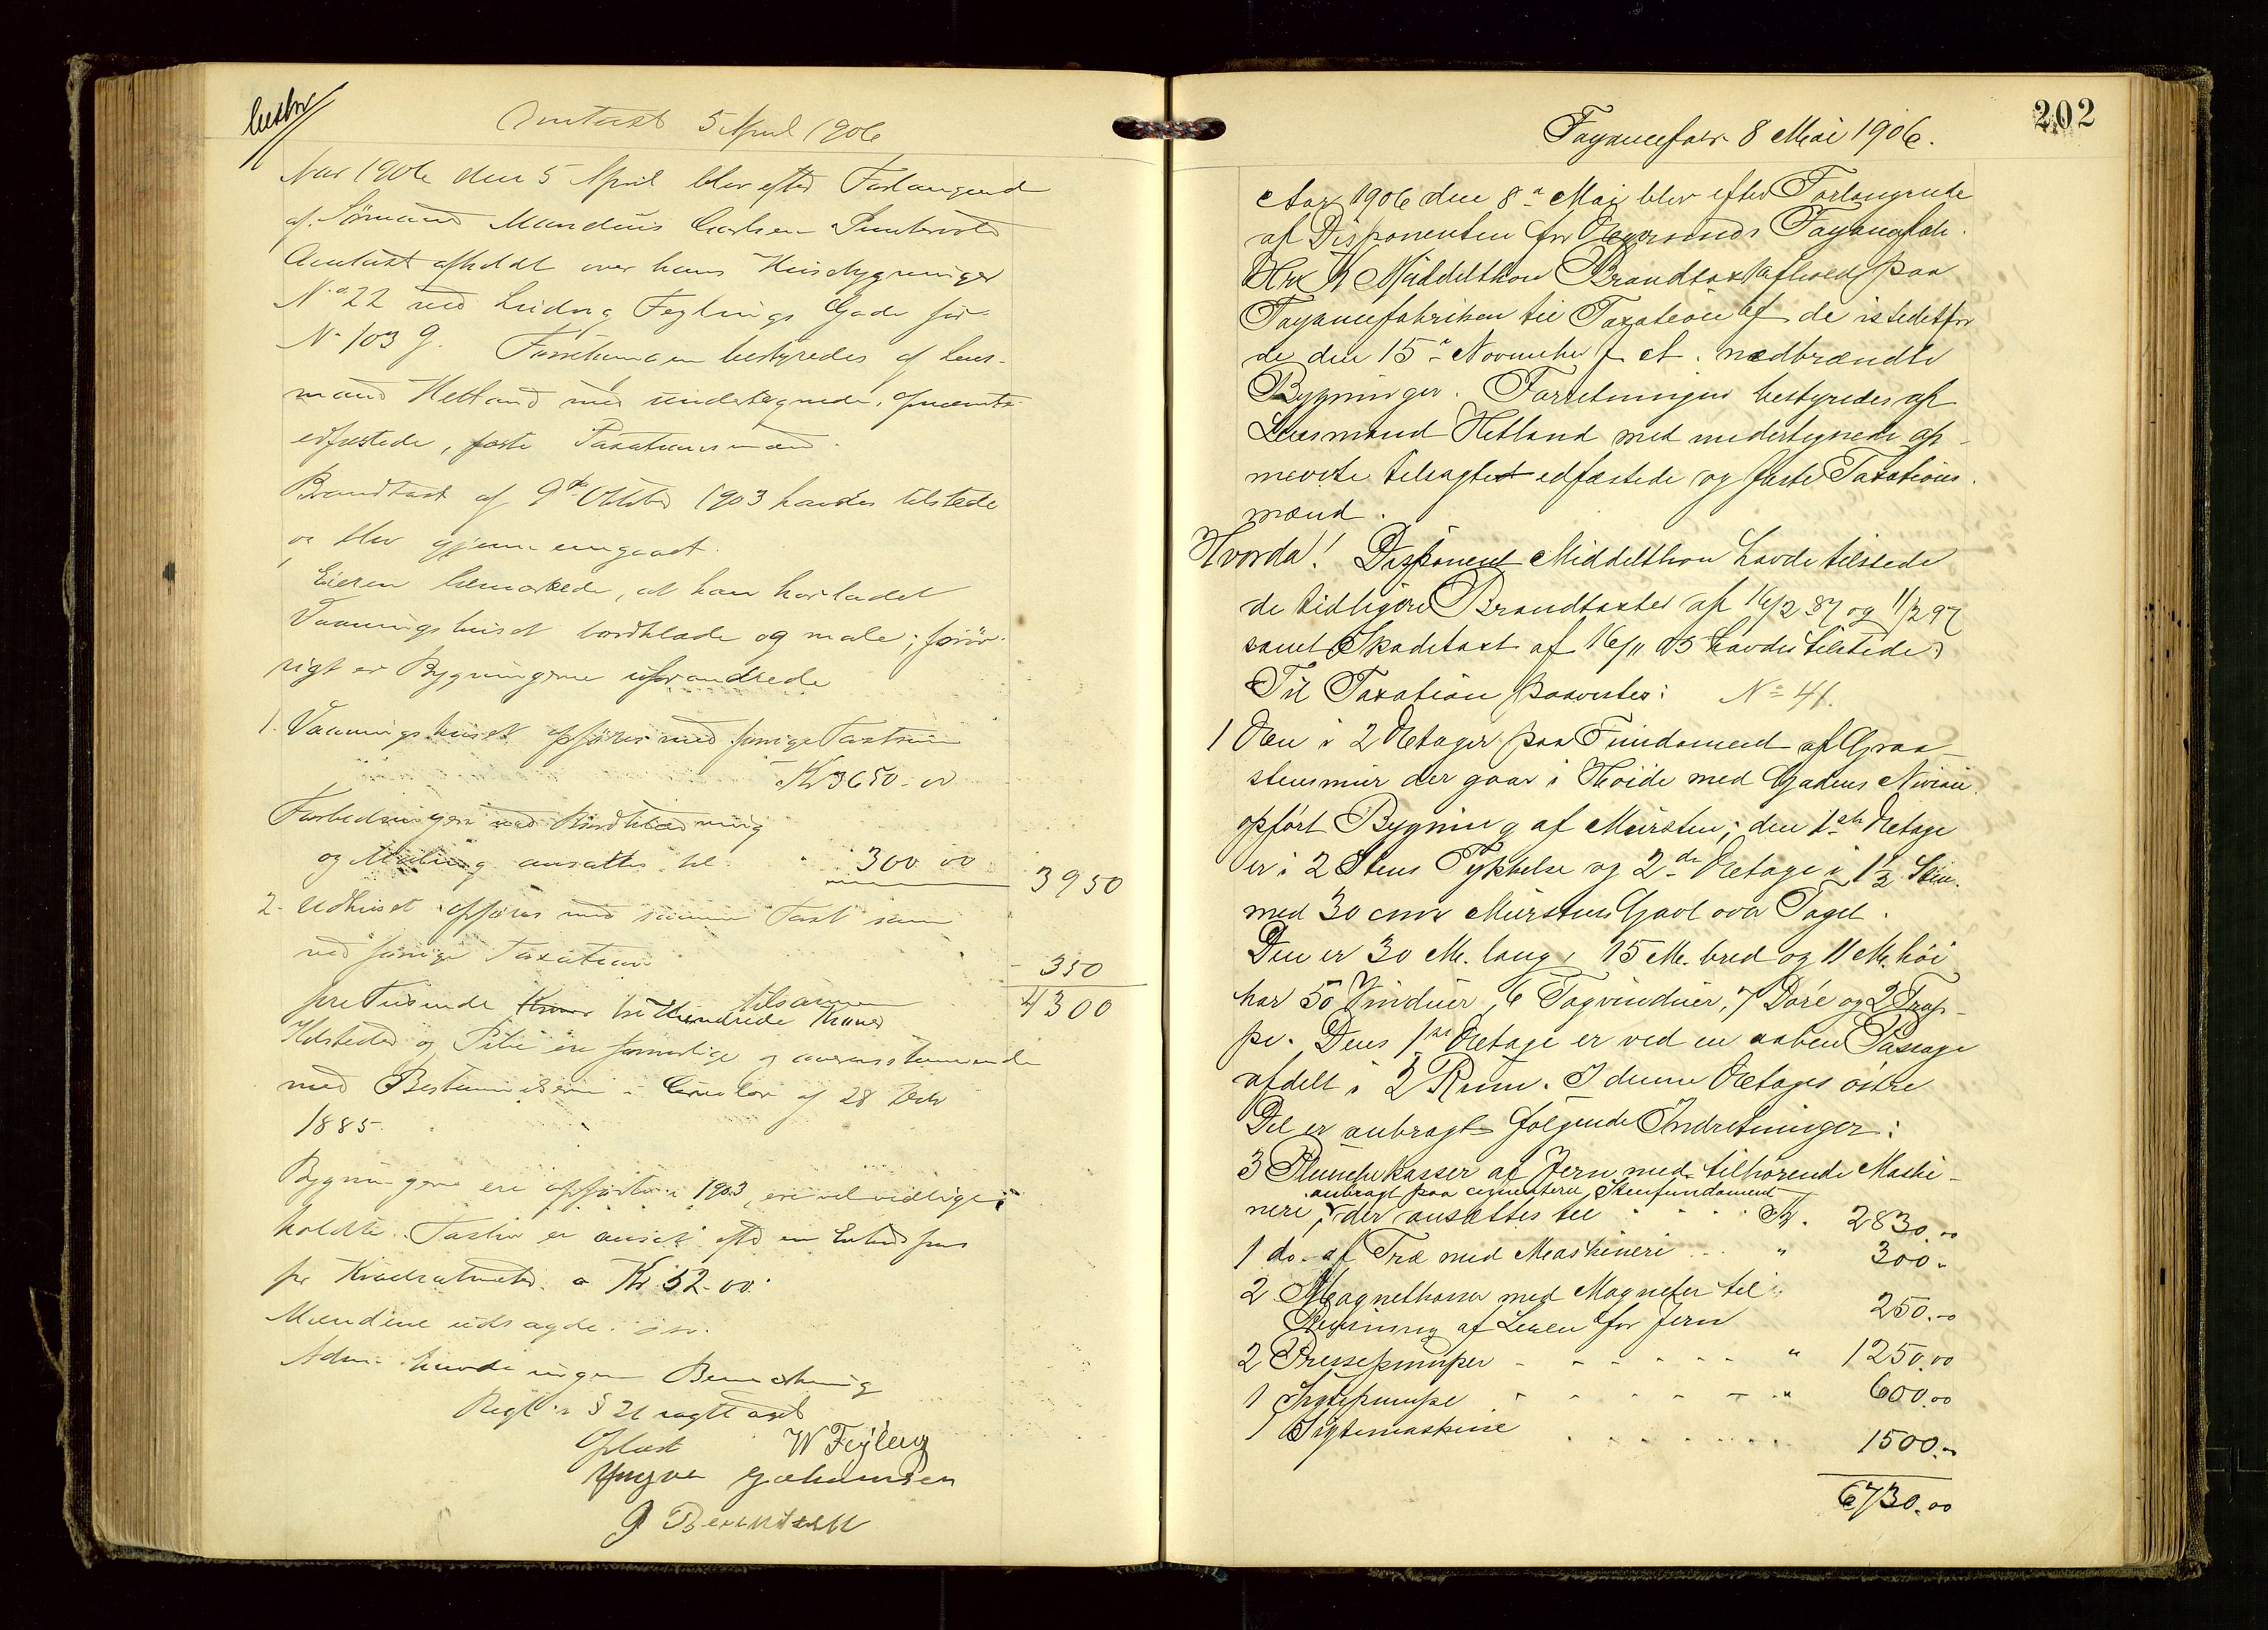 Omtaxt 5 April 1906
Aar 1906 den 5 April blev efter Forlangend
af Sømand Mandius Carlsen
Omtaxt afholdt over hans Husebygninger
No 22 ved Ludvig Feylings Gade før
No 103 g. Forretningen bestyredes af Lens-
mand Hetland med undertegnede, opnævnte
edfæstede, faste Taxationsmænd.
Brandtaxt af 9de Oktober 1903 havdes tilstede
og blev gjennemgaaet.
Eieren bemærkede, at han har ladet
Vaaningshuset bordklæde og male; forøv-
rigt er Bygningerne uforandrede
1. Vaaningshuset opføres med forrige Taxtsum
Kr 3650-00
Forbedringen ved Bordklædning
og Maling ansattes til " 300 00 3950
2- Udhuset opføres med samme Taxt som
ved forrige Taxation - 350
tilsammen 4300
fire Tusinde Kroner tre Hundrede Kroner
Ildsteder og Piber ere forsvarlige og overensstemmende
med Bestemmelserne i Lov af 28
1885.
Bygningerne ere opførte i 1903, ere vel vedlige-
holdte. Taxten er ansat efter en Enhedspris
pr Kvadratmeter a Kr 52-00.
Mændene udsagde
Adm. havde ingen Bemærkning
Regl. § 21 iagttaget
Oplæst W Feyling
Yngvar Johannsen
J Berentsen
202
Fayancefabr. 8 Mai 1906.
Aar 1906 den 8de Mai blev efter Forlangende
af Disponenten for Egersunds Fayancefab.
Hr Middelthon Brandtaxt afholdt paa
Fayancefabriken til Taxation af de istedetfor
de den 15de November f. A. nedbrændte
Bygninger. Forretningen bestyredes af
Lensmand Hetland med undertegnede op-
nævnte tilsagte edfæstede og faste Taxations-
mænd.
Hvorda! Disponent Middelthon havde tilstede
de tidligere Brandtaxter af 16/2 87 og 11/2 97
samt Skadetaxt af 16/11 05 havdes tilstede
Til Taxation paavistes: No 41.
1 Een i 2 Etager paa Fundament af Graa-
stensmur der gaar i Høide med Gadens Niveau
opført Bygning af Mursten; den 1ste Etage
er i 2 Stens Tykkelse og 2den Etage i 1½ Sten.
med 30 cm Murstens Gavl over Taget.
Den er 30 M. lang, 15 M. bred og 11 M. høi
har 50 Vinduer, 6 Tagvinduer, 7 Døre og 2 Trap-
per. Dens 1ste Etage er ved en aaben Passage
afdelt i 2 Rum. I denne Etages østre
Del er anbragt følgende Indretninger:
3 Plunchekasser af Jern med tilhørende Maski-
anbragt paa cementeret Stenfundament
neri, der ansættes til Kr. 2830.00
1 do. af Træ med Maskineri " 300.-
2 Magnetkasser med Magneter til
Rensning af Leren for Jern 250.-
2 Pressepumper " 1250.00
1 Sigtepumpe " 600.00
1 Sigtemaskine 1500.-
6730.00